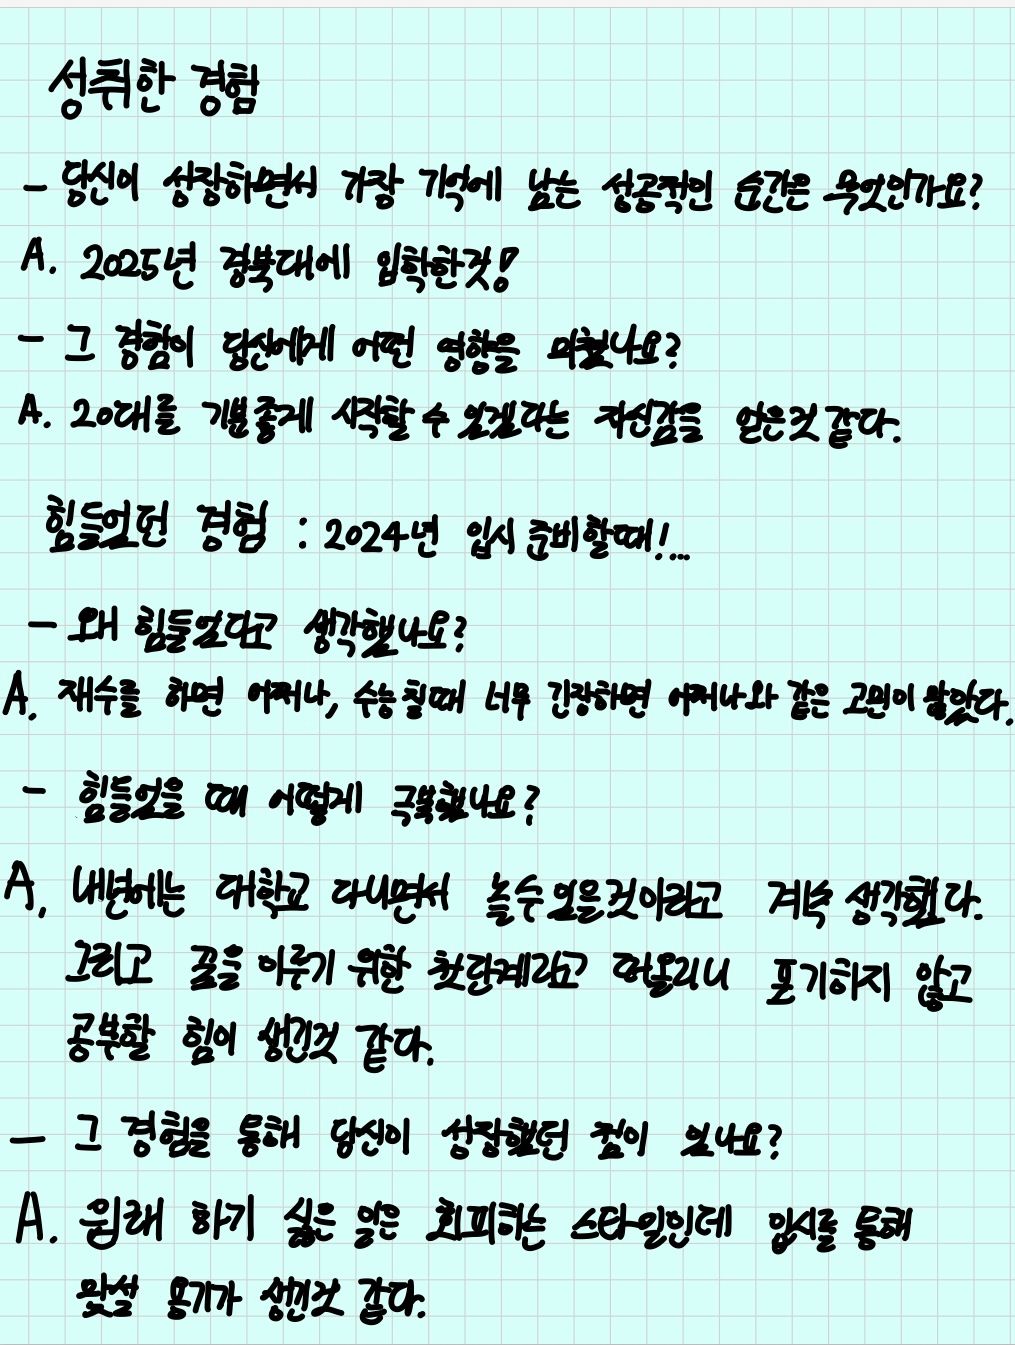 성취한 경험
- 당신이 성장하면서 가장 기억에 남는 성공적인 순간은 무엇인가요?
A. 2025년 경북대에 입학한것!
- 그 경험이 당신에게 어떤 영향을 미쳤나요?
A. 20대를 기분좋게 시작할 수 있겠다는 자신감을 얻은것 같다.
힘들었던 경험 : 2024년 입시 준비할때!...
- 왜 힘들었다고 생각했나요?
A. 재수를 하면 어쩌나, 수능칠때 너무 긴장하면 어쩌나와 같은 고민이 많았다.
- 힘들었을 때 어떻게 극복했나요?
A. 내년에는 대학교 다니면서 놀수 있을것이라고 계속 생각했다.
그리고 꿈을 이루기 위한 첫단계라고 떠올리니 포기하지 않고
공부할 힘이 생긴것 같다.
- 그 경험을 통해 당신이 성장했던 점이 있나요?
A. 원래 하기 싫은 일은 회피하는 스타일인데 입시를 통해
맞설 용기가 생긴것 같다.